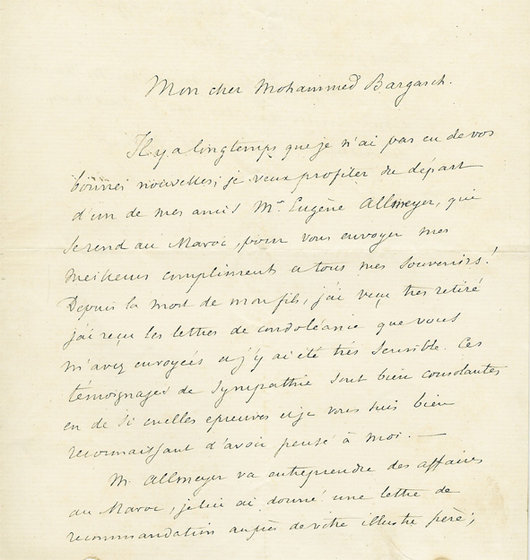 Mon cher Mohammed Bargasch.
Il y a longtemps que je n'ai pas eu de vos
bonnes nouvelles; je veux profiter du départ
d'un de mes amis Mr. Eugène Allmeyer, qui
se rend au Maroc, pour vous envoyer mes
meilleurs compliments et tous mes souvenirs!
Depuis la mort de mon fils, j'ai vécu très retiré
j'ai reçu les lettres de condoléance que vous
m'avez envoyées et j'y ai été très sensible. Ces
témoignages de sympathie sont bien consolantes
en de si cruelles épreuves et je vous suis bien
reconnaissant d'avoir pensé à moi. —
M. Allmeyer va entreprendre des affaires
au Maroc, je lui ai donné une lettre de
recommandation auprès de votre illustre père;